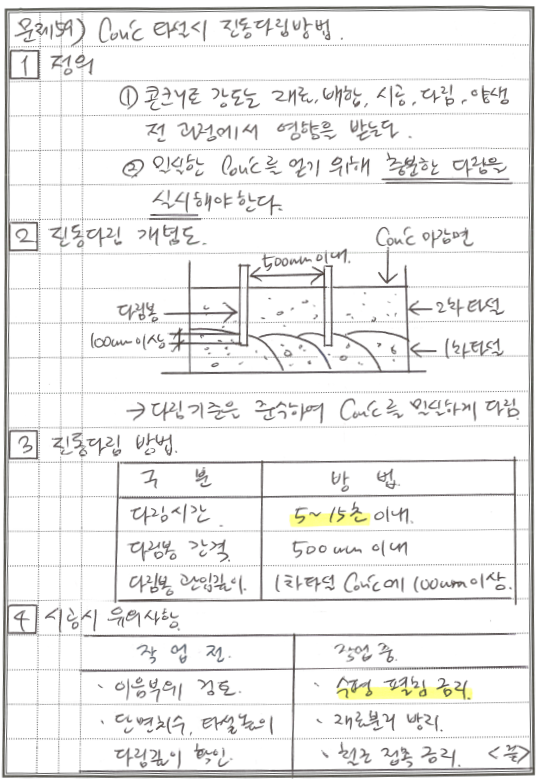 문제59) Con'c 타설시 진동다짐방법.
1 정의
① 콘크리트 강도는 재료, 배합, 시공, 다짐, 양생
전 과정에서 영향을 받는다.
② 밀실한 Con'c를 얻기 위해 충분한 다짐을
실시해야 한다.
2 진동다짐 개념도.
500mm이내.
Con'c 마감면
다짐봉
2차 타설
100mm이상
1차타설
→ 다짐기준은 준수하여 Con'c를 밀실하게 다짐.
3 진동다짐 방법.
구 분 방 법.
다짐시간. 5~15초 이내.
다짐봉 간격. 500mm 이내
다짐봉 관입깊이. 1차타설 Con'c에 100mm이상.
4 시공시 유의사항.
작 업 전. 작업 중.
· 이음부위 검토. · 수평 펼침 금지.
· 단면치수, 타설높이 · 재료분리 방지.
다짐깊이 확인. · 철근 접촉 금지. <끝>